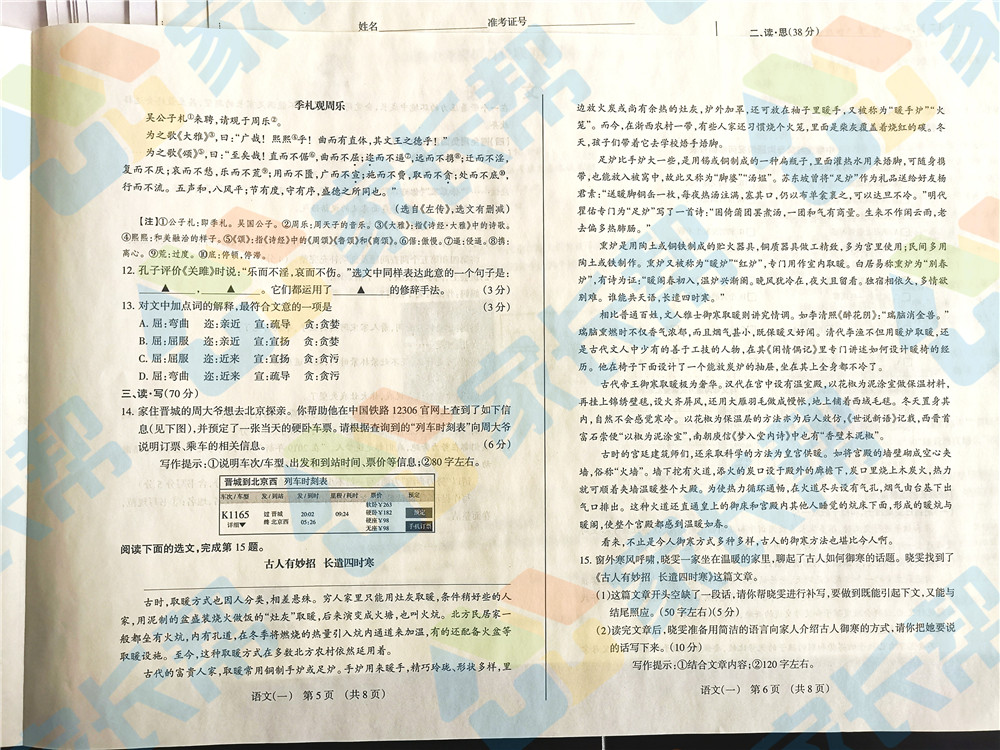 姓名
准考证号
二、读·思(38分)
季札观周乐
吴公子札①来聘,请观于周乐②。
为之歌《大雅》③,曰:“广哉!熙熙④乎!曲而有直体,其文王之德乎!”
为之歌《颂》⑤,曰:“至矣哉!直而不倨⑥,曲而不屈;迩而不逼⑦,远而不携⑧;迁而不淫,
复而不厌;哀而不愁,乐而不荒⑨;用而不匮,广而不宣;施而不费,取而不贪;处而不底⑩,
行而不流。五声和,八风平;节有度,守有序,盛德之所同也。”
(选自《左传》,选文有删减)
【注】①公子札:即季札。吴国公子。②周乐:周天子的音乐。③《大雅》:指《诗经·大雅》中的诗歌。
④熙熙:和美融洽的样子。⑤《颂》:指《诗经》中的《周颂》《鲁颂》和《商颂》。⑥倨:傲慢。⑦逼:侵逼。⑧携:
离心。⑨荒:过度。⑩底:停顿,停滞。
12. 孔子评价《关雎》时说:“乐而不淫,哀而不伤。”选文中同样表达此意的一个句子是:
▲ , ▲ 。它们都运用了 ▲ 的修辞手法。 (3分)
13. 对文中加点词的解释,最符合文意的一项是 (3分)
A. 屈:弯曲 迩:亲近 宣:疏导 贪:贪婪
B. 屈:屈服 迩:亲近 宣:宣扬 贪:贪婪
C. 屈:屈服 迩:近来 宣:宣扬 贪:贪污
D. 屈:弯曲 迩:近来 宣:疏导 贪:贪污
三、读·写(70分)
14. 家住晋城的周大爷想去北京探亲。你帮助他在中国铁路12306官网上查到了如下信
息(见下图),并预定了一张当天的硬卧车票。请根据查询到的“列车时刻表”向周大爷
说明订票、乘车的相关信息。 (6分)
写作提示:①说明车次/车型、出发和到站时间、票价等信息;②80字左右。
晋城到北京西 列车时刻表
车次/车型 发/到站 发/到时 里程/耗时 票价 预定
K1165 详细▼ 过 晋城 终 北京西 20:02 05:26 09:24 软卧¥263 硬卧¥182 硬座¥98 无座¥98 预定 手机订票
阅读下面的选文,完成第15题。
古人有妙招 长遣四时寒
古时,取暖方式也因人分类,相差悬殊。穷人家里只能用灶灰取暖,条件稍好些的人
家,用泥制的盆盛装烧火做饭的“灶灰”取暖,后来演变成火塘,也叫火炕。北方民居家一
般都垒有火炕,内有孔道,在冬季将燃烧的热量引入炕内通道来加温,有的还配备火盆等
取暖设施。至今,这种取暖方式在多数北方农村依然延用着。
古代的富贵人家,取暖常用铜制手炉或足炉。手炉用来暖手,精巧玲珑、形状多样,里
语文(一) 第5页 (共8页)
边放火炭或尚有余热的灶灰,炉外加罩,还可放在袖子里暖手,又被称为“暖手炉”“火
笼”。而今,在浙西农村一带,有些人家还习惯烧个火笼,里面是柴灰覆盖着烧红的碳。冬
天,孩子们带着它去学校焐手焐脚。
足炉比手炉大一些,是用锡或铜制成的一种扁瓶子,里面灌热水用来焐脚,可随身携
带,也能放入被窝中,故此又称为“脚婆”“汤媪”。苏东坡曾将“足炉”作为礼品送给好友杨
君素:“送暖脚铜缶一枚,每夜热汤注满,塞其口,仍以布单裹裹之,可以达旦不冷。”明代
瞿佑专门为“足炉”写了一首诗:“困倚蒲团罢煮汤,一团和气有商量。生来不作闲云雨,老
去偏多热肺肠。”
熏炉是用陶土或铜铁制成的贮火器具,铜质器具做工精致,多为官里使用;民间多用
陶土或铁制作。熏炉又被称为“暖炉”“红炉”,专门用作室内取暖。白居易称熏炉为“别春
炉”,有诗为证:“暖阁春初入,温炉兴渐阑。晚风犹冷在,夜火且留看。独宿相依久,多情欲
别难。谁能共天语,长遣四时寒。”
相比普通百姓,文人雅士御寒取暖则讲究情调。如李清照《醉花阴》:“瑞脑消金兽。”
瑞脑熏燃时不仅香气浓郁,而且烟气甚小,既保暖又好闻。清代李渔不但用暖炉取暖,还
是古代文人中少有的善于工技的人物,在其《闲情偶记》里专门讲述如何设计暖椅的经
历。他在椅子下面设计了一个能放炭炉的抽屉,坐在其上全身都不冷了。
古代帝王御寒取暖极为奢华。汉代在宫中设有温室殿,以花椒为泥涂室做保温材料,
再挂上锦绣壁毯,设火齐屏风,还用大雁羽毛做成幔帐,地上铺着西域毛毯。冬天置身其
内,自然不会感觉寒冷。以花椒为保温层的方法亦为后人效仿,《世说新语》记载,西晋首
富石崇便“以椒为泥涂室”,南朝庾信《梦入堂内诗》中也有“香壁本泥椒”。
古时的宫廷建筑师们,还采取科学的方法为皇宫供暖。如将宫殿的墙壁砌成空心夹
墙,俗称“火墙”。墙下挖有火道,添火的炭口设于殿外的廊檐下,炭口里烧上木炭火,热力
就可顺着夹墙温暖整个大殿。为使热力循环通畅,在火道尽头设有气孔,烟气由台基下出
气口排出。这种火道还直通皇上的御床和宫殿内其他人睡觉的炕床下面,形成的暖炕与
暖阁,使整个宫殿都感到温暖如春。
看来,不止是今人御寒方式多种多样,古人的御寒方法也堪比今人啊。
15. 窗外寒风呼啸,晓雯一家坐在温暖的家里,聊起了古人如何御寒的话题。晓雯找到了
《古人有妙招 长遣四时寒》这篇文章。
(1)这篇文章开头空缺了一段话,请你帮晓雯进行补写,要做到既能引起下文,又能与
结尾照应。(50字左右)(5分)
(2)读完文章后,晓雯准备用简洁的语言向家人介绍古人御寒的方式,请你把她要说
的话写下来。(10分)
写作提示:①结合文章内容;②120字左右。
语文(一) 第6页 (共8页)